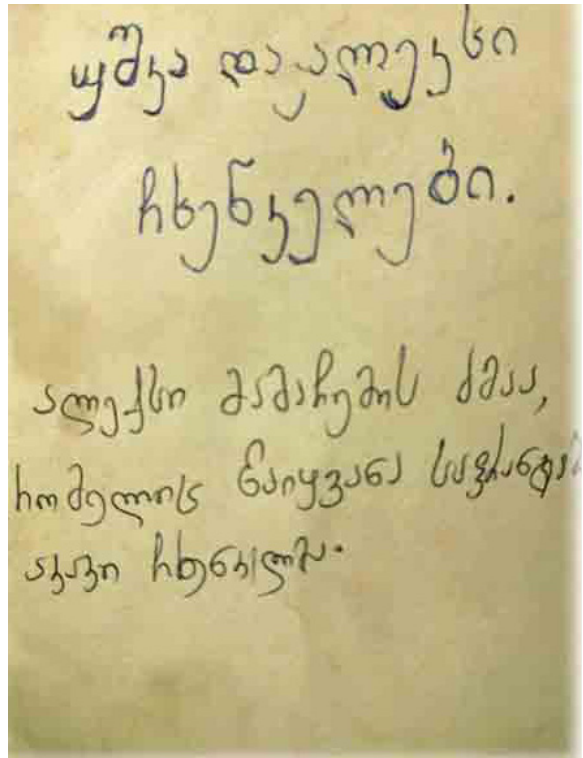 უშკა და ალექსი
ჩხენკელები.
ალექსი მამაჩემის ძმაა,
რომელიც წაიყვანა საფრანგ
აკაკი ჩხენკელმა.